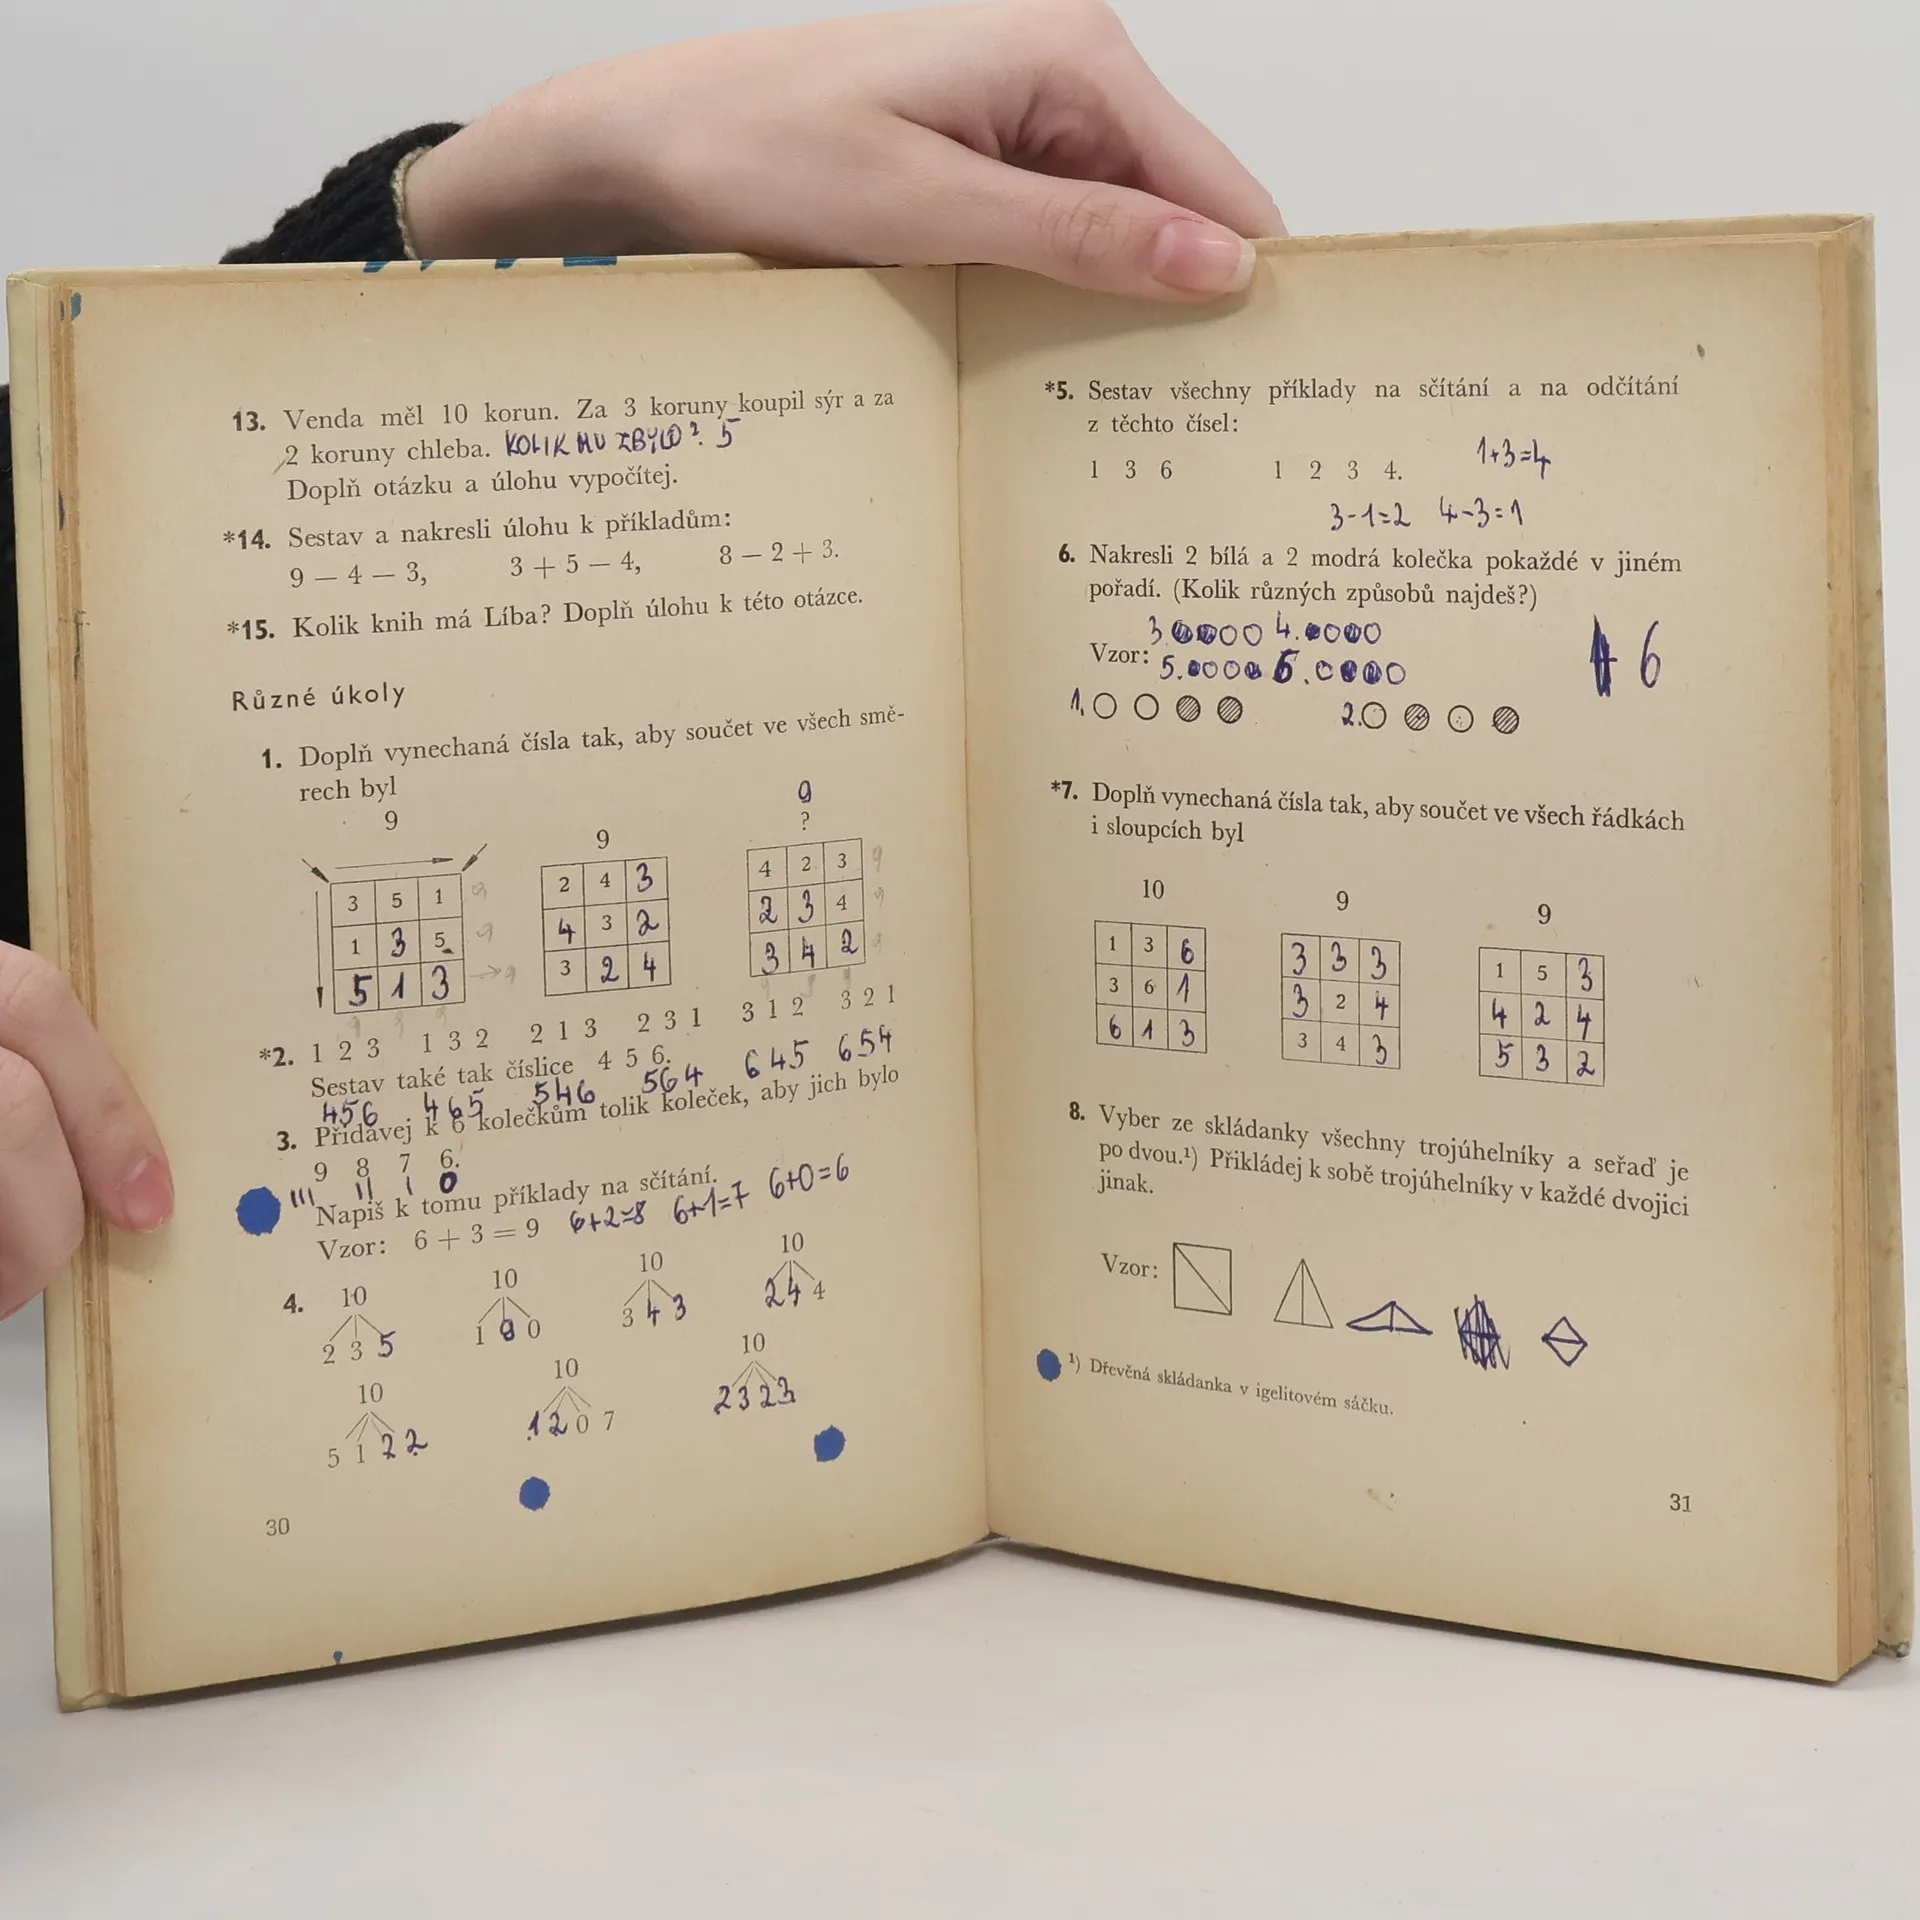 13. Venda měl 10 korun. Za 3 koruny koupil sýr a za
2 koruny chleba. KOLIK MU ZBYLO? 5
Doplň otázku a úlohu vypočítej.
*14. Sestav a nakresli úlohu k příkladům:
9 — 4 — 3, 3 + 5 — 4, 8 — 2 + 3.
*15. Kolik knih má Líba? Doplň úlohu k této otázce.
Různé úkoly
1. Doplň vynechaná čísla tak, aby součet ve všech smě-
rech byl
9 9 9
?
3 5 1 9
1 3 5 9
5 1 3 9
9 9 9
2 4 3
4 3 2
3 2 4
4 2 3 9
2 3 4 9
3 4 2 9
*2. 1 2 3 1 3 2 2 1 3 2 3 1 3 1 2 3 2 1
Sestav také tak číslice 4 5 6.
456 465 546 564 645 654
3. Přidávej k 6 kolečkům tolik koleček, aby jich bylo
9 8 7 6.
III II I 0
Napiš k tomu příklady na sčítání.
Vzor: 6 + 3 = 9 6+2=8 6+1=7 6+0=6
4. 10 10 10 10
2 3 5 1 9 0 3 4 3 2 4 4
10 10 10
5 1 2 2 1 2 0 7 2 3 2 3
30
*5. Sestav všechny příklady na sčítání a na odčítání
z těchto čísel:
1 3 6 1 2 3 4. 1+3=4
3-1=2 4-3=1
6. Nakresli 2 bílá a 2 modrá kolečka pokaždé v jiném
pořadí. (Kolik různých způsobů najdeš?)
3. 4. 6
Vzor: 5. 6.
1. 2.
*7. Doplň vynechaná čísla tak, aby součet ve všech řádkách
i sloupcích byl
10 9 9
1 3 6
3 6 1
6 1 3
3 3 3
3 2 4
3 4 3
1 5 3
4 2 4
5 3 2
8. Vyber ze skládanky všechny trojúhelníky a seřaď je
po dvou.¹) Přikládej k sobě trojúhelníky v každé dvojici
jinak.
Vzor:
¹) Dřevěná skládanka v igelitovém sáčku.
31